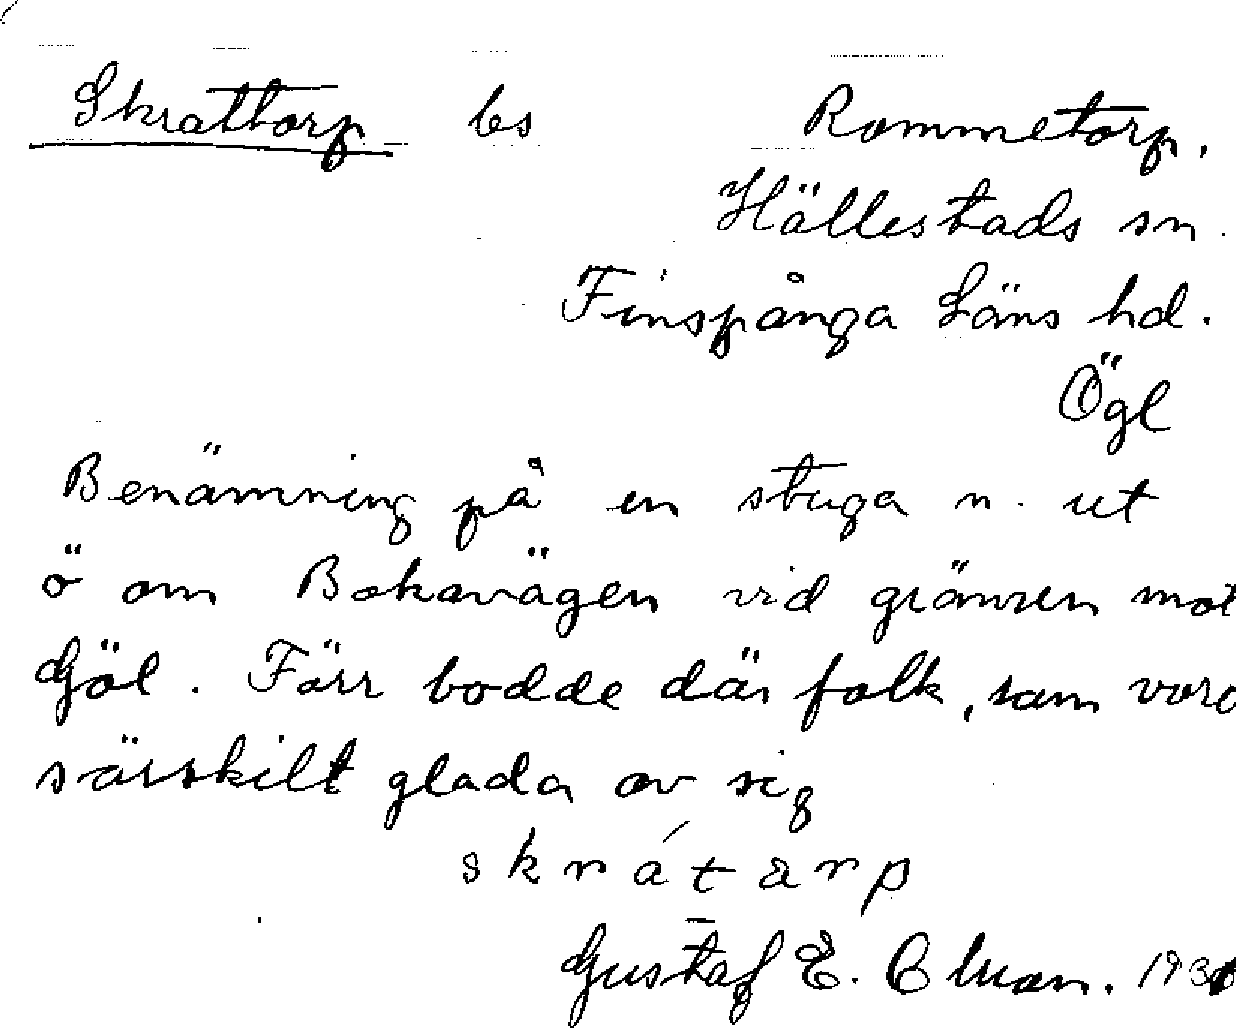 Skrattorp bs Rommetorp.
Hällestads sn.
Finspånga Läns hd.
Ögl
Benämning på en stuga n. ut
ö om Bokavägen vid gränsen mot
Göl. Förr bodde där folk, som voro
särskilt glada av sig
skrátarp
Gustaf E.